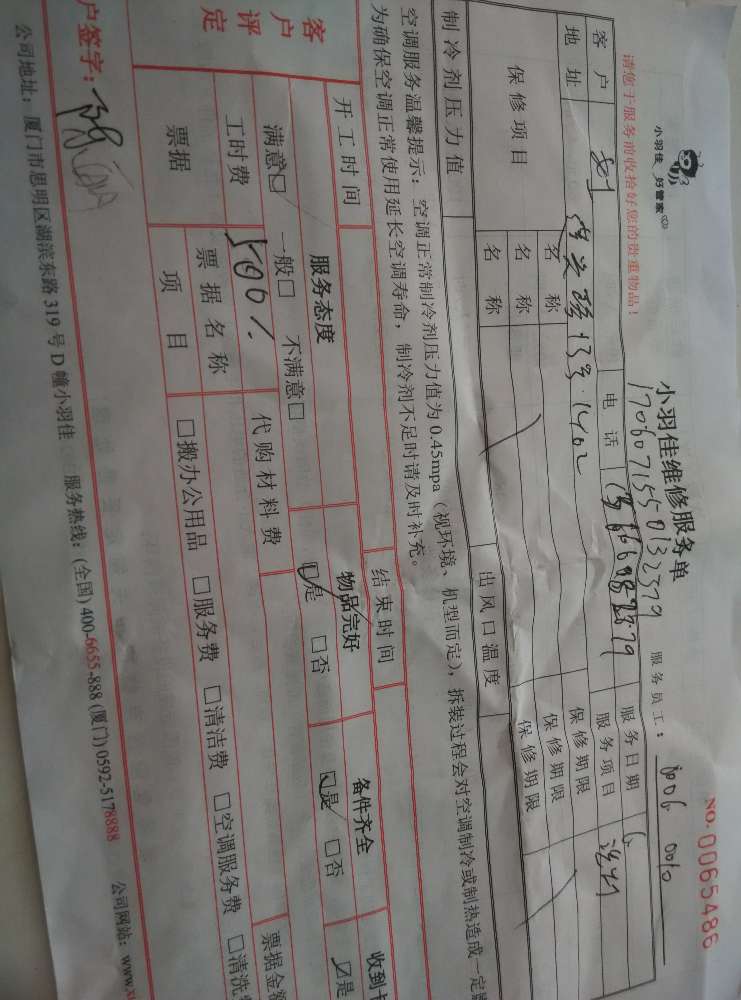 小羽佳 好管家
请您于服务前收拾好您的贵重物品！
NO.0065486
小羽佳维修服务单
1706071550132379
服务员工： 006 0010
客户
电话
服务日期
地址
13号1402
服务项目
保修项目
名称
保修期限
名称
保修期限
名称
保修期限
制冷剂压力值
出风口温度
空调服务温馨提示：空调正常制冷剂压力值为 0.45mpa（视环境、机型而定），拆装过程会对空调制冷或制热造成一定
为确保空调正常使用延长空调寿命，制冷剂不足时请及时补充。
开工时间
结束时间
客户评定
服务态度
物品完好
备件齐全
收到卡
满意□ 一般□ 不满意□
☑是 □否
☑是 □否
☑是
工时费
500
代购材料费
票据
票据名称
票据金额
项目
□搬办公用品 □服务费 □清洁费 □空调服务费 □清洗
户签字：
公司地址：厦门市思明区湖滨东路 319 号 D 幢小羽佳 服务热线：(全国) 400-6655-888 (厦门) 0592-5178888 公司网站：www.x